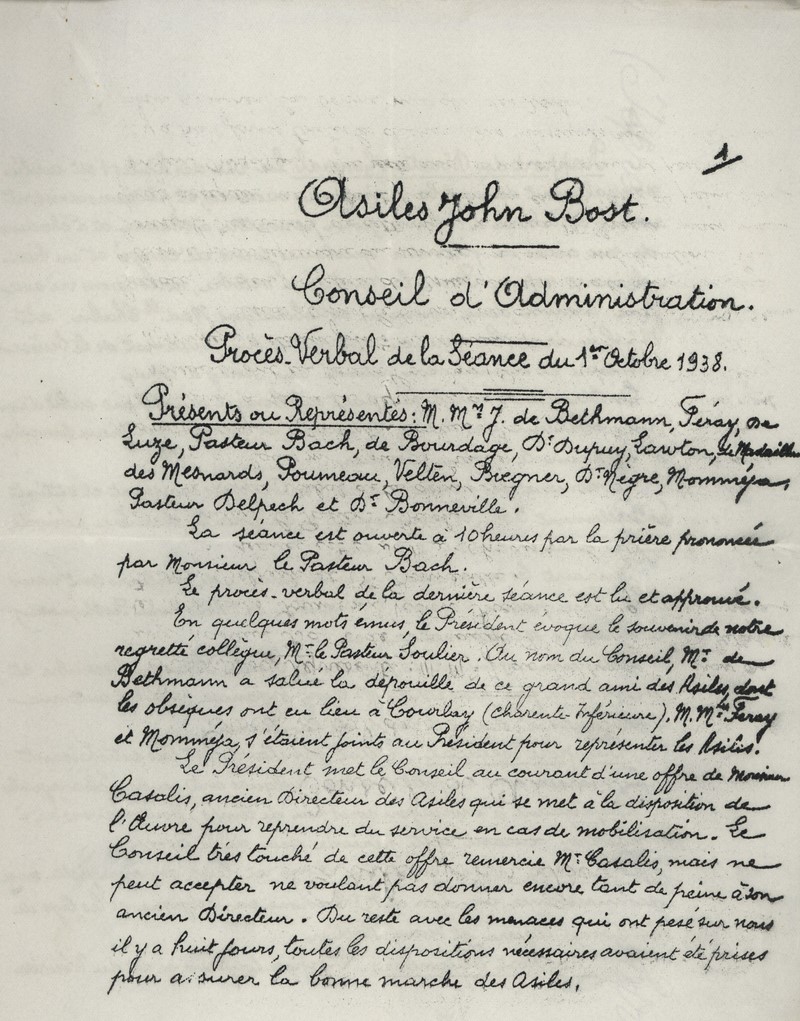 1
Asiles John Bost.
Conseil d'Administration.
Procès-Verbal de la Séance du 1er Octobre 1938.
Présents ou Représentés: M.Mrs J. de Bethmann, Féray, De
Luze, Pasteur Bach, de Bourdage, Dr Dupuy, Lawton, de
des Mesnards, Poumeau, Velten, Bregner, Dr Nègre, Momméja,
Pasteur Delpech et Dr Bonneville.
La séance est ouverte à 10 heures par la prière prononcée
par Monsieur le Pasteur Bach.
Le procès-verbal de la dernière séance est lu et approuvé.
En quelques mots émus, le Président évoque le souvenir de notre
regretté collègue, Mr le Pasteur Soulier. Au nom du Conseil, Mr de
Bethmann a salué la dépouille de ce grand ami des Asiles, dont
les obsèques ont eu lieu à Courbay (Charente-Inférieure). M.Mrs Feray
et Momméja s'étaient joints au Président pour représenter les Asiles.
Le Président met le Conseil au courant d'une offre de Monsieur
Casalis, ancien Directeur des Asiles qui se met à la disposition de
l'Œuvre pour reprendre du service en cas de mobilisation. Le
Conseil très touché de cette offre remercie Mr Casalis, mais ne
peut accepter ne voulant pas donner encore tant de peine à son
ancien Directeur. Du reste avec les menaces qui ont pesé sur nous
il y a huit jours, toutes les dispositions nécessaires avaient été prises
pour assurer la bonne marche des Asiles.